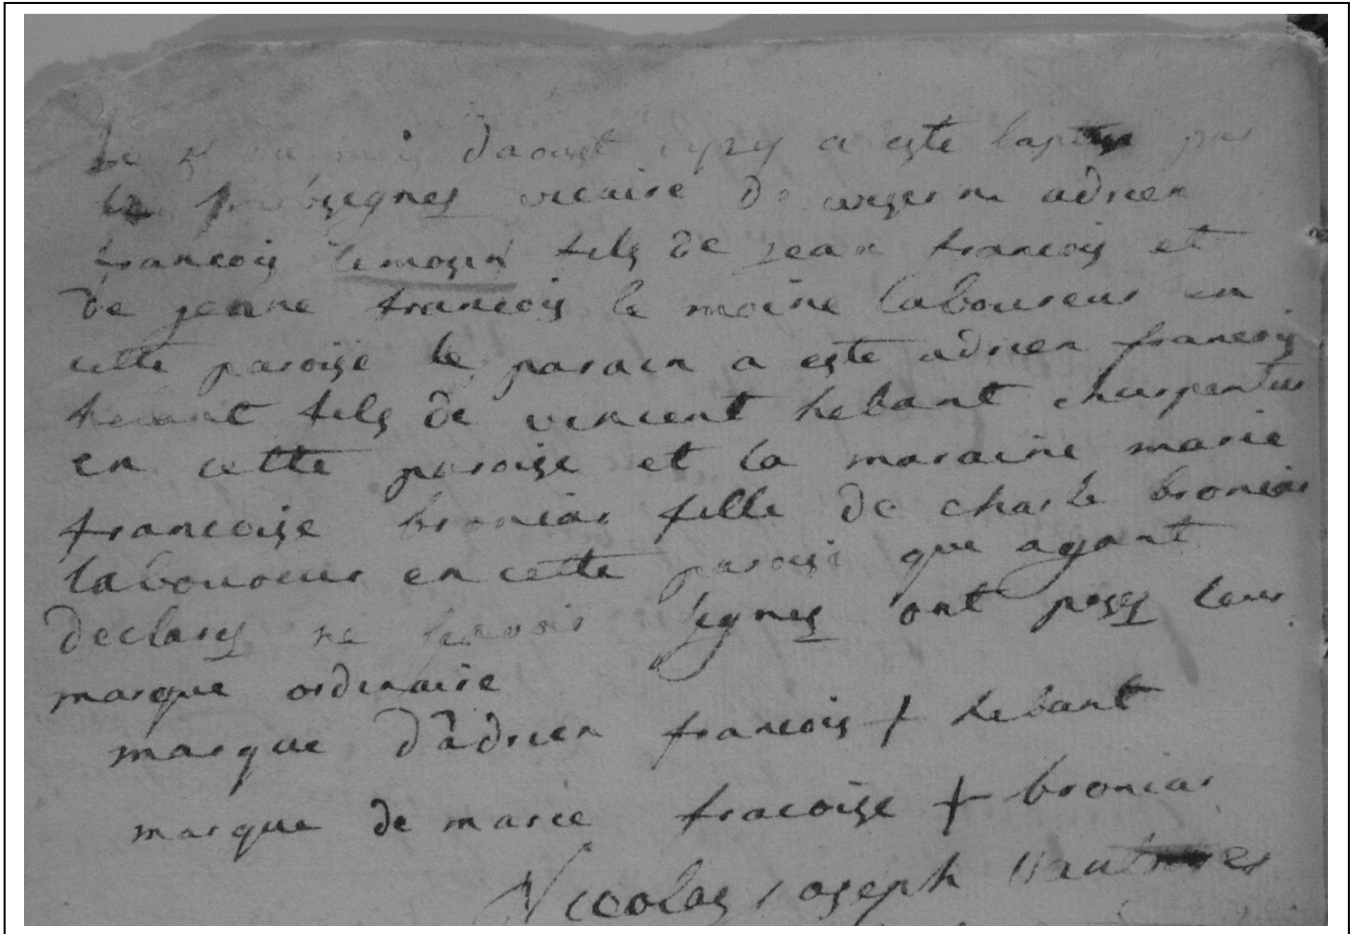 Le daoust 1729 a este baptise par
le vicaire de adrien
francois limosin fils de jean francois et
de jenne francois le moine laboureur en
cette paroise le parain a este adrien francois
hebant fils de vincent hebant charpentier
en cette paroise et la maraine marie
francoise broniar fille de charle broniar
laboureur en cette paroise que ayant
declarez ne scavoir signez ont posez leur
marque ordinaire
marque d'adrien francois + hebant
marque de marie fracoise + broniar
Nicolas joseph